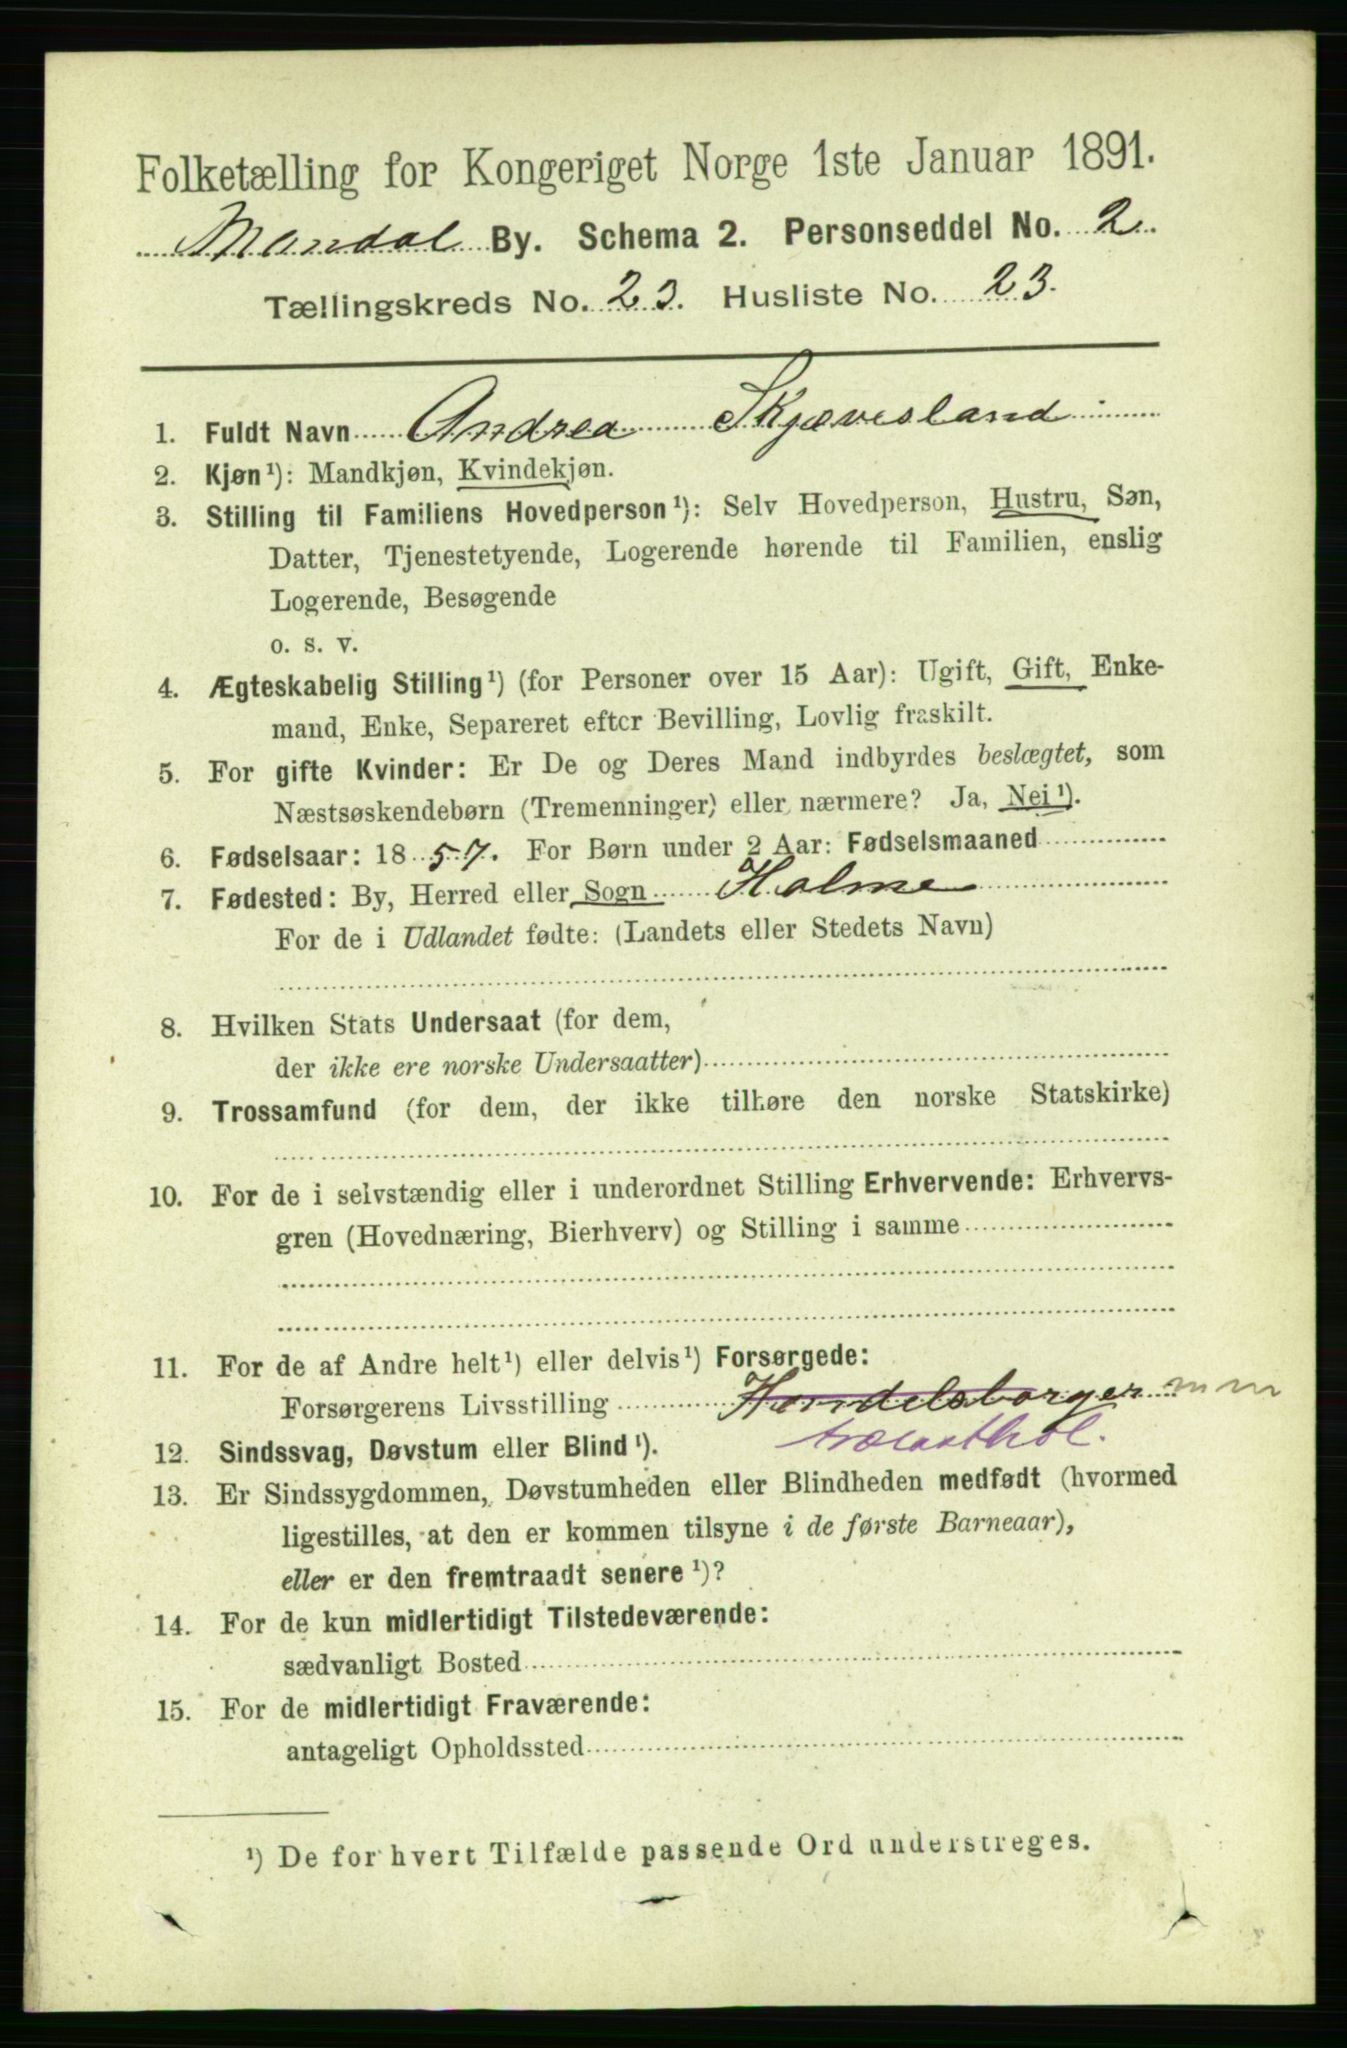 Folketælling for Kongeriget Norge 1ste Januar 1891.
Mandal By. Schema 2. Personseddel No. 2.
Tællingskreds No. 23. Husliste No. 23.
1. Fuldt Navn Andrea Skjævesland
2. Kjøn¹): Mandkjøn, Kvindekjøn.
3. Stilling til Familiens Hovedperson¹): Selv Hovedperson, Hustru, Søn,
Datter, Tjenestetyende, Logerende hørende til Familien, enslig
Logerende, Besøgende
o. s. v.
4. Ægteskabelig Stilling¹) (for Personer over 15 Aar): Ugift, Gift, Enke-
mand, Enke, Separeret efter Bevilling, Lovlig fraskilt.
5. For gifte Kvinder: Er De og Deres Mand indbyrdes beslægtet, som
Næstsøskendebørn (Tremenninger) eller nærmere? Ja, Nei¹).
6. Fødselsaar: 1857. For Børn under 2 Aar: Fødselsmaaned
7. Fødested: By, Herred eller Sogn Holme
For de i Udlandet fødte: (Landets eller Stedets Navn)
8. Hvilken Stats Undersaat (for dem,
der ikke ere norske Undersaatter)
9. Trossamfund (for dem, der ikke tilhøre den norske Statskirke)
10. For de i selvstændig eller i underordnet Stilling Erhvervende: Erhvervs-
gren (Hovednæring, Bierhverv) og Stilling i samme
11. For de af Andre helt¹) eller delvis¹) Forsørgede:
Forsørgerens Livsstilling Handelsborger m m
trælasthdl.
12. Sindssvag, Døvstum eller Blind¹).
13. Er Sindssygdommen, Døvstumheden eller Blindheden medfødt (hvormed
ligestilles, at den er kommen tilsyne i de første Barneaar),
eller er den fremtraadt senere¹)?
14. For de kun midlertidigt Tilstedeværende:
sædvanligt Bosted
15. For de midlertidigt Fraværende:
antageligt Opholdssted
¹) De for hvert Tilfælde passende Ord understreges.